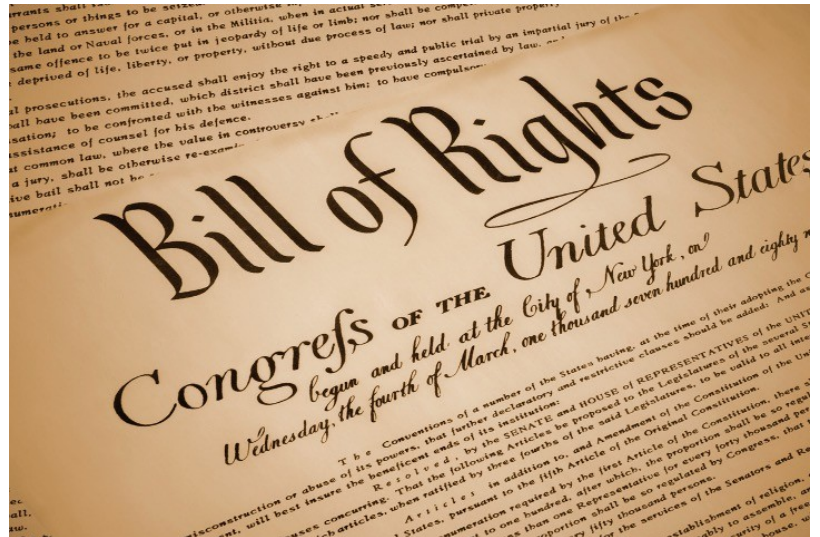 shall
persons or things to be
be held to answer for a capital, or otherwise
the land or Naval forces, or in the Militia, when in actual
same offence to be twice put in jeopardy of life or limb; nor shall be
deprived of life, liberty, or property, without due process of law; nor shall private property
prosecutions, the accused shall enjoy the right to a speedy and public trial by an impartial jury of the
shall have been committed, which district shall have been previously ascertained by law,
to be confronted with the witnesses against him; to have
assistance of counsel for his defence.
common law, where the value in controversy
a jury, shall be otherwise
bail shall not be
Bill of Rights
Congreſs OF THE United States
begun and held at the City of New York, on
Wednesday, the fourth of March, one thousand seven hundred and eighty
The Conventions of a number of the States having, at the time of their adopting the
misconstruction or abuse of its powers, that further declaratory and restrictive clauses should be added: And
will best insure the beneficent ends of its institution:
Resolved, by the SENATE and HOUSE of REPRESENTATIVES of the
concurring. That the following Articles be proposed to the Legislatures of the several
articles, when ratified by three fourths of the said Legislatures, to be valid to all
Articles in addition to, and Amendment of the Constitution of the
States, pursuant to the fifth Article of the Original Constitution.
required by the first Article of the Constitution, there
to one hundred, after which, the proportion shall be so
than one Representative for every forty thousand
shall be so regulated by Congress, that
fifty thousand persons.
for the services of the Senators and
of religion,
to assemble,
of a